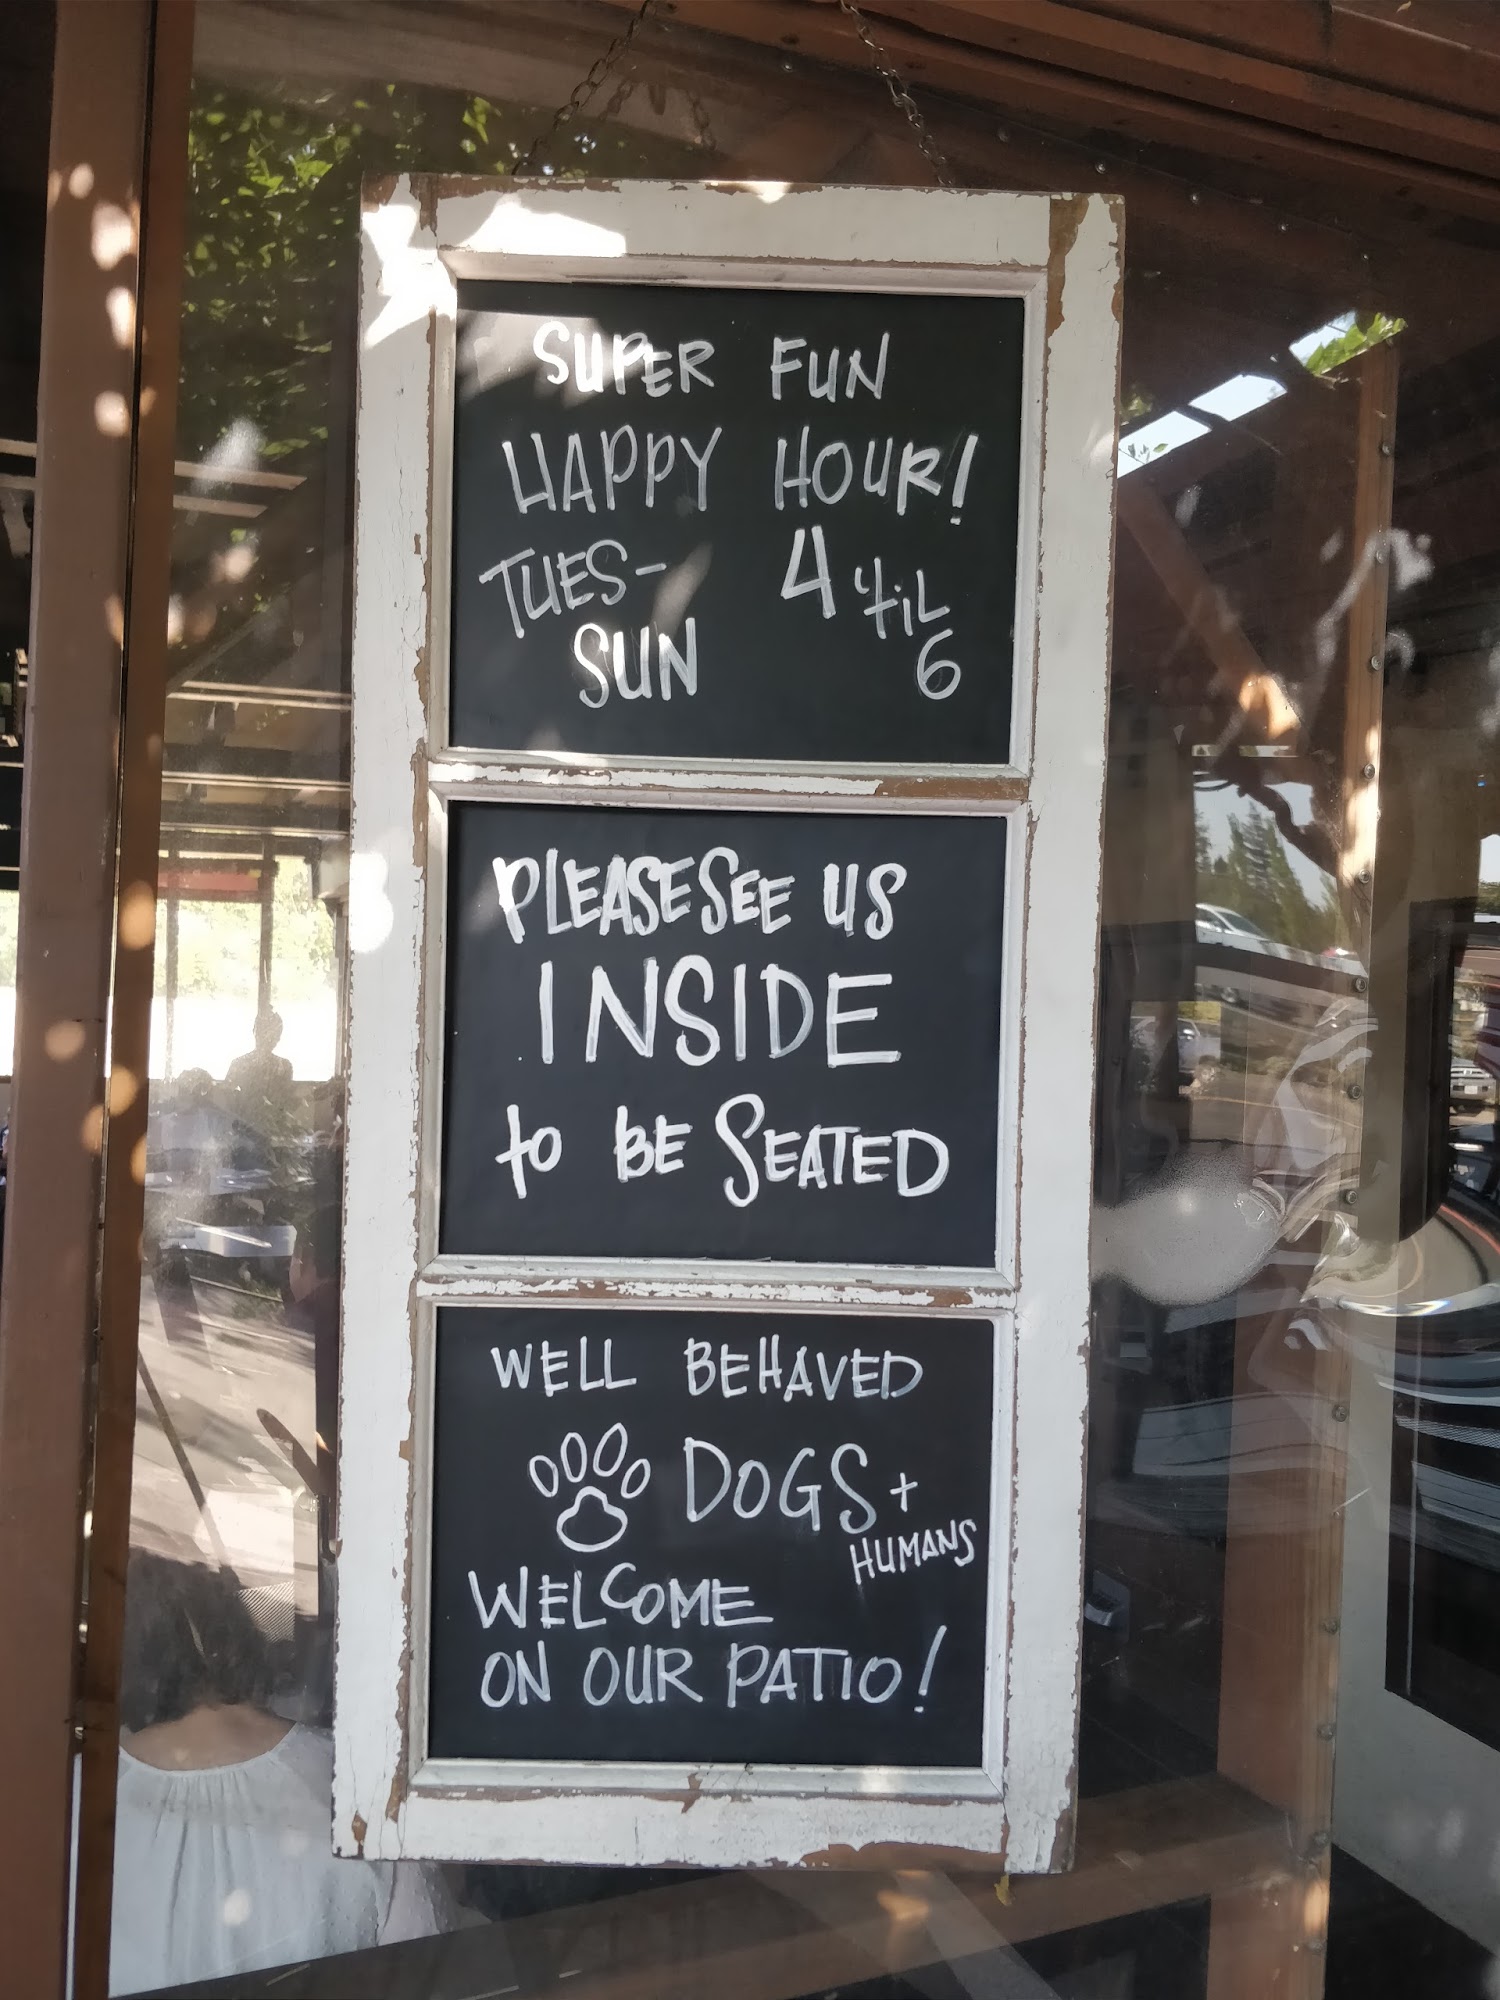 SUPER FUN
HAPPY HOUR!
TUES- 4 'til
SUN 6
PLEASE SEE US
INSIDE
to BE SEATED
WELL BEHAVED
DOGS +
HUMANS
WELCOME
ON OUR PATIO!